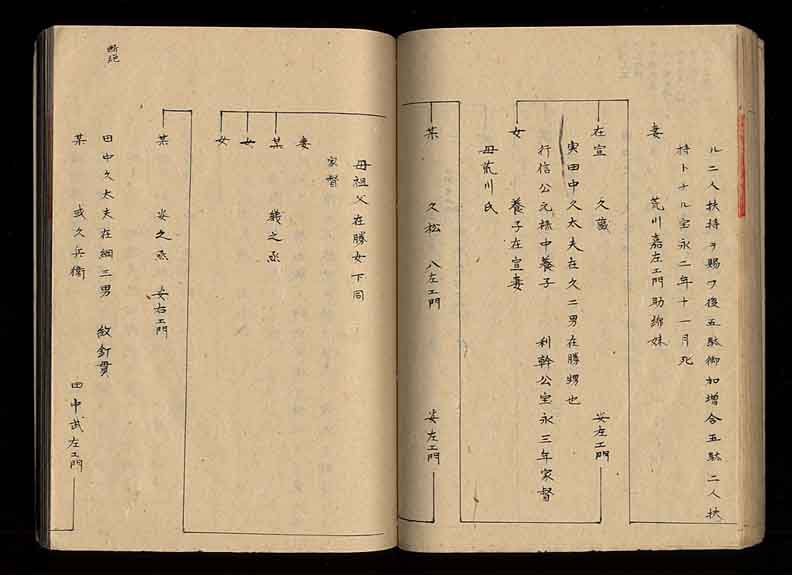 ル二人扶持ヲ賜フ後五駄御加増合五駄二人扶
持トナル宝永二年十一月死
妻 荒川嘉左エ門助綱妹
在宣 久蔵 安左エ門
実田中久太夫在久二男在勝甥也
行信公元禄中養子 利幹公宝永三年家督
女 養子在宣妻
母荒川氏
某 久松 八左エ門 安左エ門
母祖父在勝女下同
家督
妻
某 義之丞
女
女
某 安之丞 安右エ門
田中久太夫在綱三男 紋釘貫
某 或久兵衛 田中武左エ門
断絶